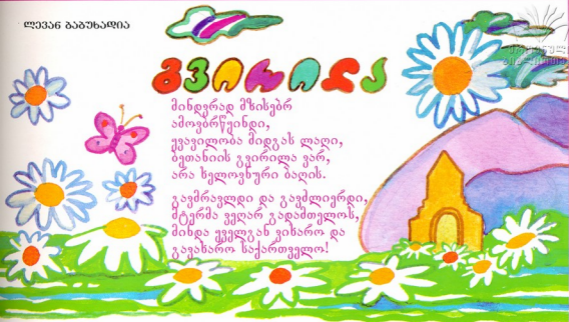 ლევან ბაბუხადია
გვირილა
მინდვრად მზისებრ
ამოვბრწყინდი,
ყვავილობა მიდგას ლაღი,
ბეთანიის გვირილა ვარ,
არა ხელოვნური ბაღის.
გავმრავლდი და გავძლიერდი,
მტერმა ვეღარ გადამთელოს,
მინდა ყველგან ვიხარო და
გავახარო საქართველო!